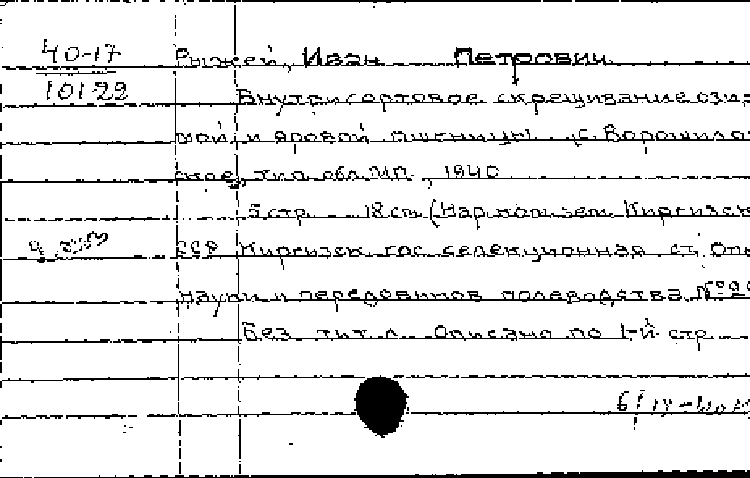 40-17 Рыжей, Иван Петрович
10122 Внутрисортовое скрещивание озим
мой и яровой пшеницы. с. Ворошилов
ское, тип. обл. МП, 1940
5 стр. 18 см (Нар. ком. зем. Киргизск
ССР Киргизск. гос. селекционная ст. Опы
науки и передовиков полеводства №22
Без тит. л. Описано по 1-й стр.